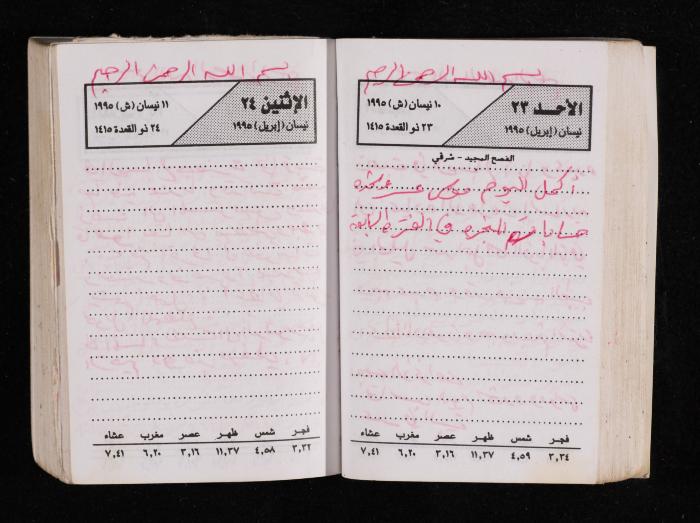 بسم الله الرحمن الرحيم
الأحد ٢٣
نيسان (ابريل) ١٩٩٥
١٠ نيسان (ش) ١٩٩٥
٢٣ ذو القعدة ١٤١٥
الفصح المجيد - شرقي
أكمل اليوم
في الفترة السابقة
فجر شمس ظهر عصر مغرب عشاء
٣,٣٤ ٤,٥٩ ١١,٣٧ ٣,١٦ ٦,٢٠ ٧,٤١
بسم الله الرحمن الرحيم
الإثنين ٢٤
نيسان (ابريل) ١٩٩٥
١١ نيسان (ش) ١٩٩٥
٢٤ ذو القعدة ١٤١٥
فجر شمس ظهر عصر مغرب عشاء
٣,٣٢ ٤,٥٨ ١١,٣٧ ٣,١٦ ٦,٢٠ ٧,٤١